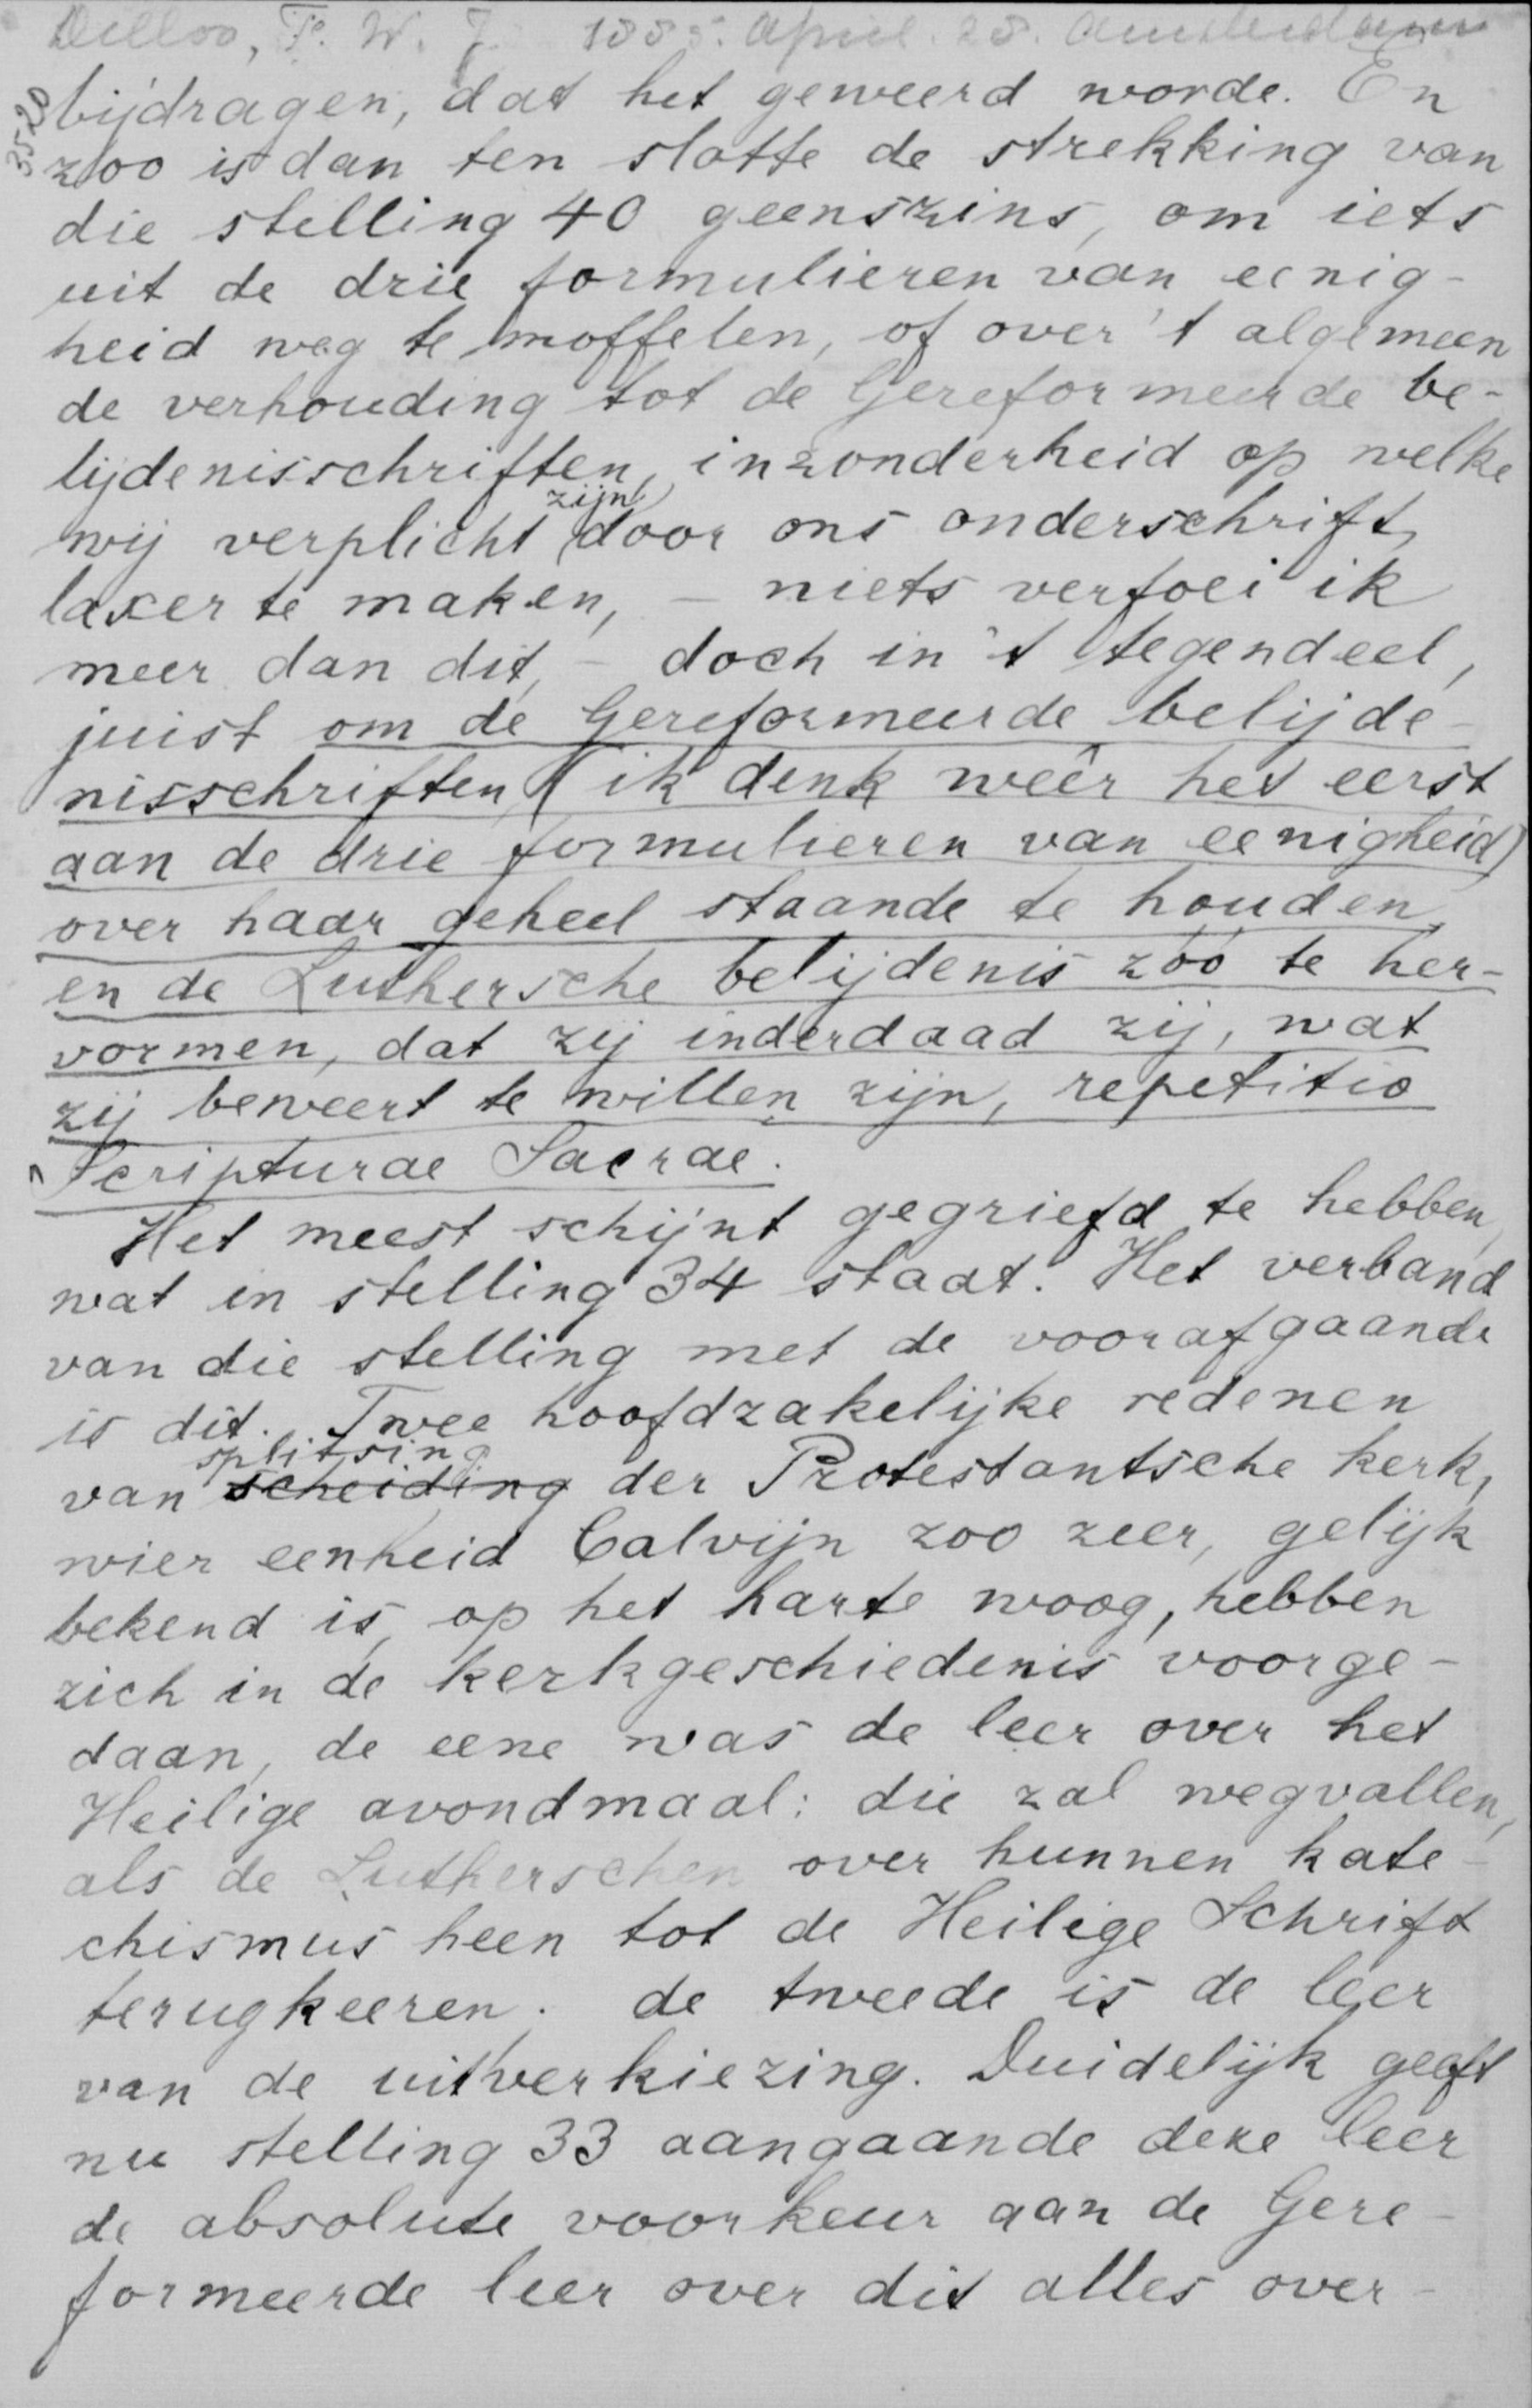 Dilloo, F. W. J. 1885. April. 28. Amsterdam
3520
bijdragen, dat het geweerd worde. En
zoo is dan ten slotte de strekking van
die stelling 40 geenszins, om iets
uit de drie formulieren van eenig-
heid weg te moffelen, of over 't algemeen
de verhouding tot de Gereformeerde be-
lijdenisschriften, inzonderheid op welke
zijn
wij verplicht door ons onderschrift,
laxer te maken, – niets verfoei ik
meer dan dit, – doch in 't tegendeel,
juist om de Gereformeerde belijde-
nisschriften (ik denk weêr het eerst
aan de drie formulieren van eenigheid)
over haar geheel staande te houden,
en de Luthersche belijdenis zóó te her-
vormen, dat zij inderdaad zij, wat
zij beweert te willen zijn, repetitio
Scripturae Sacrae.
Het meest schijnt gegriefd te hebben,
wat in stelling 34 staat. Het verband
van die stelling met de voorafgaande
is dit. Twee hoofdzakelijke redenen
splitsing
van scheiding der Protestantsche kerk,
wier eenheid Calvijn zoo zeer, gelijk
bekend is, op het harte woog, hebben
zich in de kerkgeschiedenis voorge-
daan, de eene was de leer over het
Heilige avondmaal: die zal wegvallen,
als de Lutherschen over hunnen kate-
chismus heen tot de Heilige Schrift
terugkeeren. de tweede is de leer
van de uitverkiezing. Duidelijk geeft
nu stelling 33 aangaande deze leer
de absolute voorkeur aan de Gere-
formeerde leer over dit alles over-